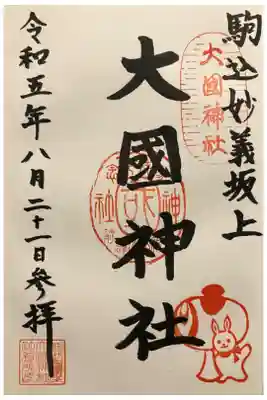 駒込妙義坂上
大国神社
大國神社
令和五年八月二十一日参拝